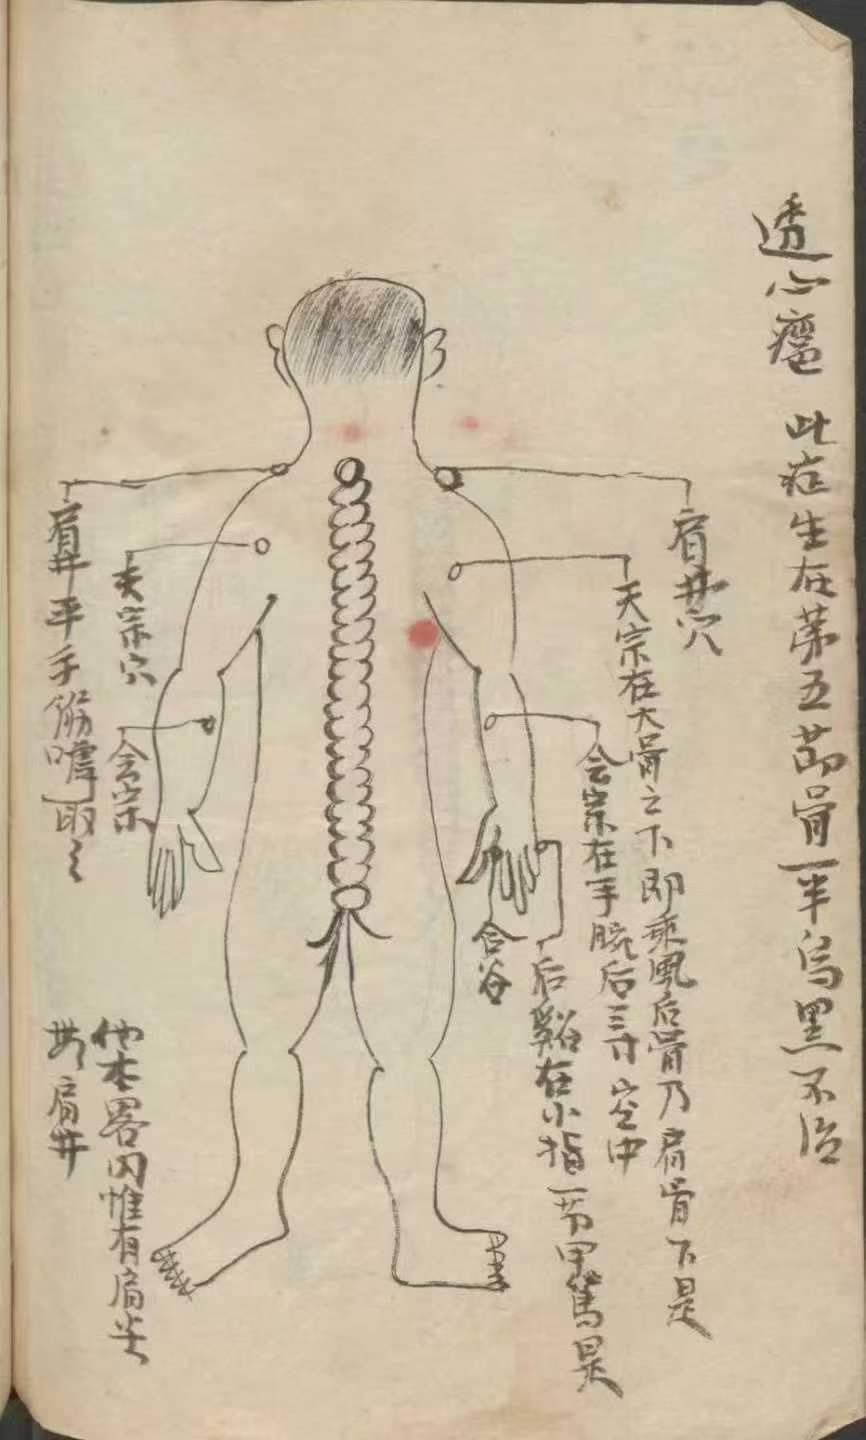 透心瘟
此症生在第五節骨一半烏黑不治
肩井穴
天宗在大骨之下即乘風后骨乃肩骨下是
会宗在手腕后三寸空中
后谿在小指一节甲篤是
合谷
天宗穴
会宗
肩井平手筋嘑取之
他本畧図惟有肩尖
無肩井